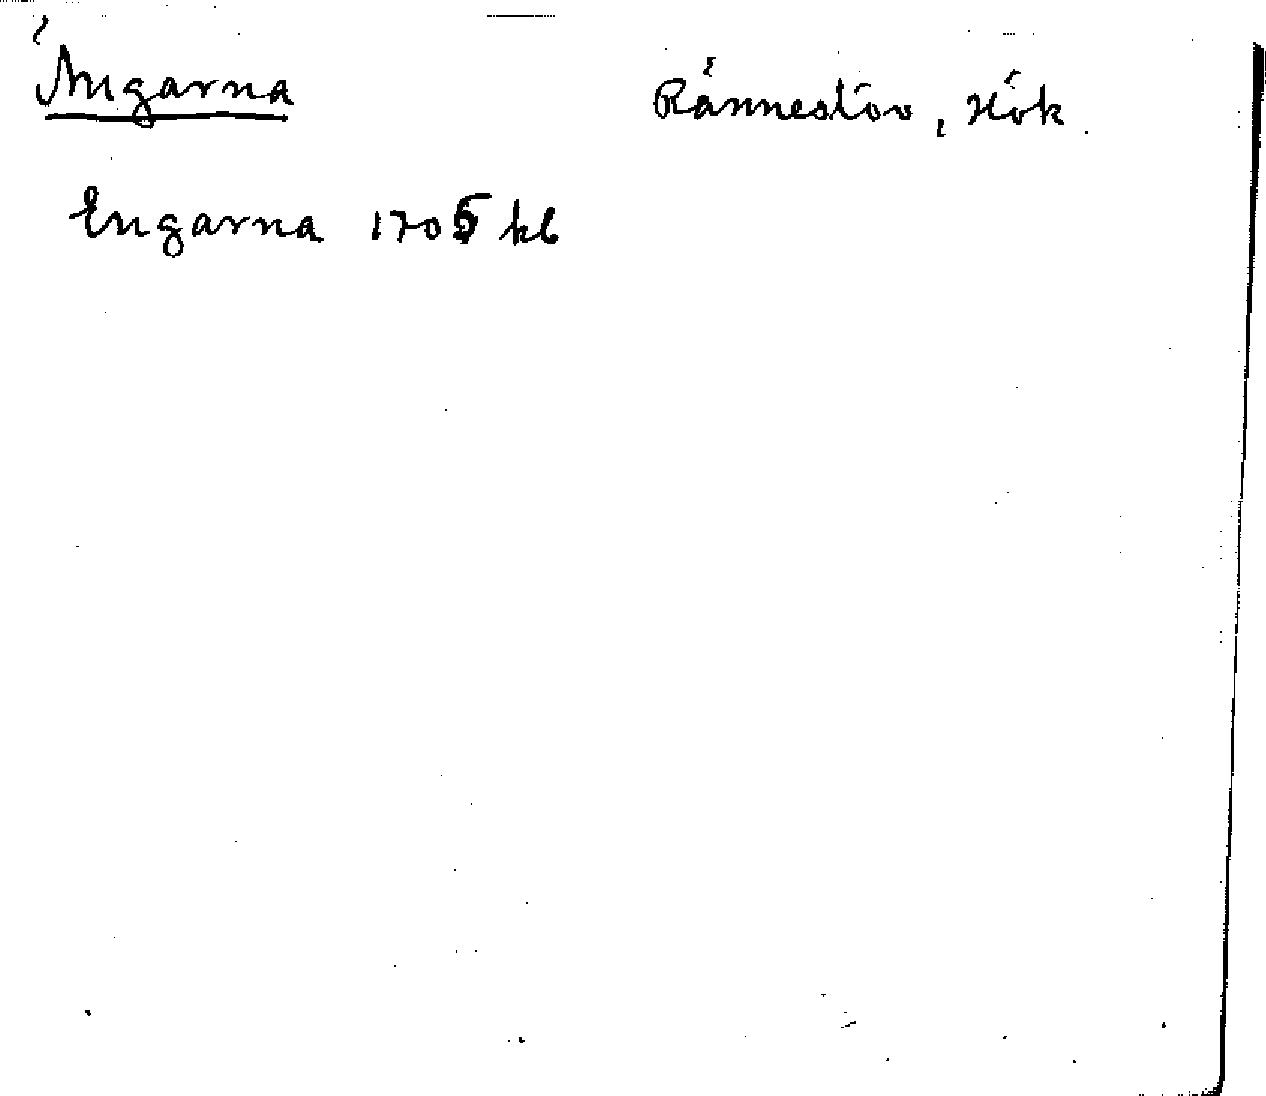 Ängarna Ränneslöv, Hök.
Engarna 1705 kb